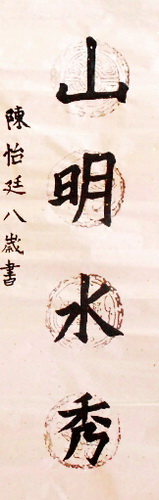 山明水秀
陳怡廷八歲書